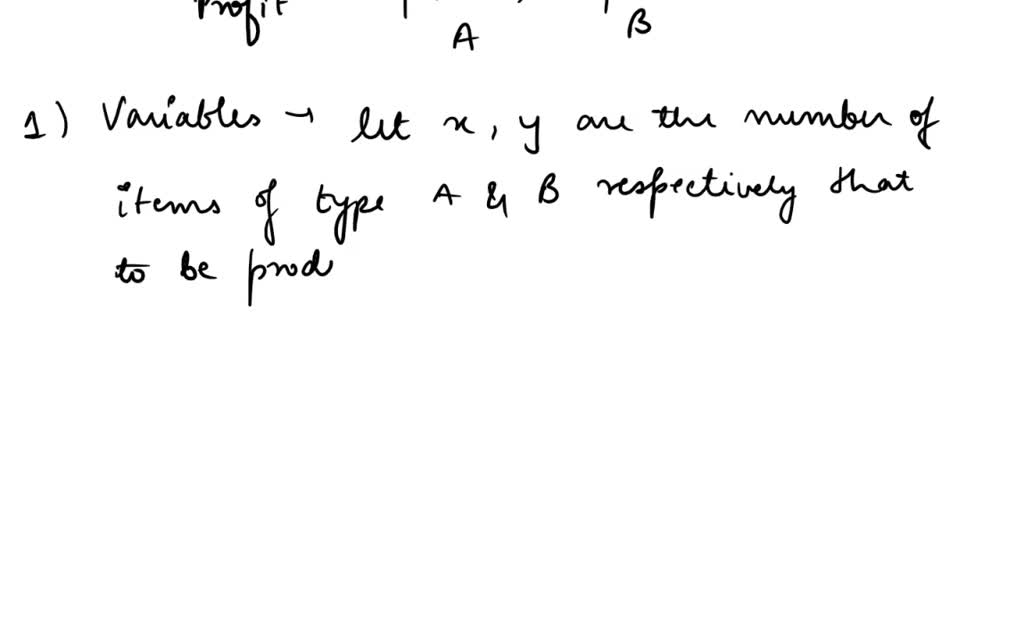 Profit
A B
1) Variables → let x, y are the number of
items of type A & B respectively that
to be prod